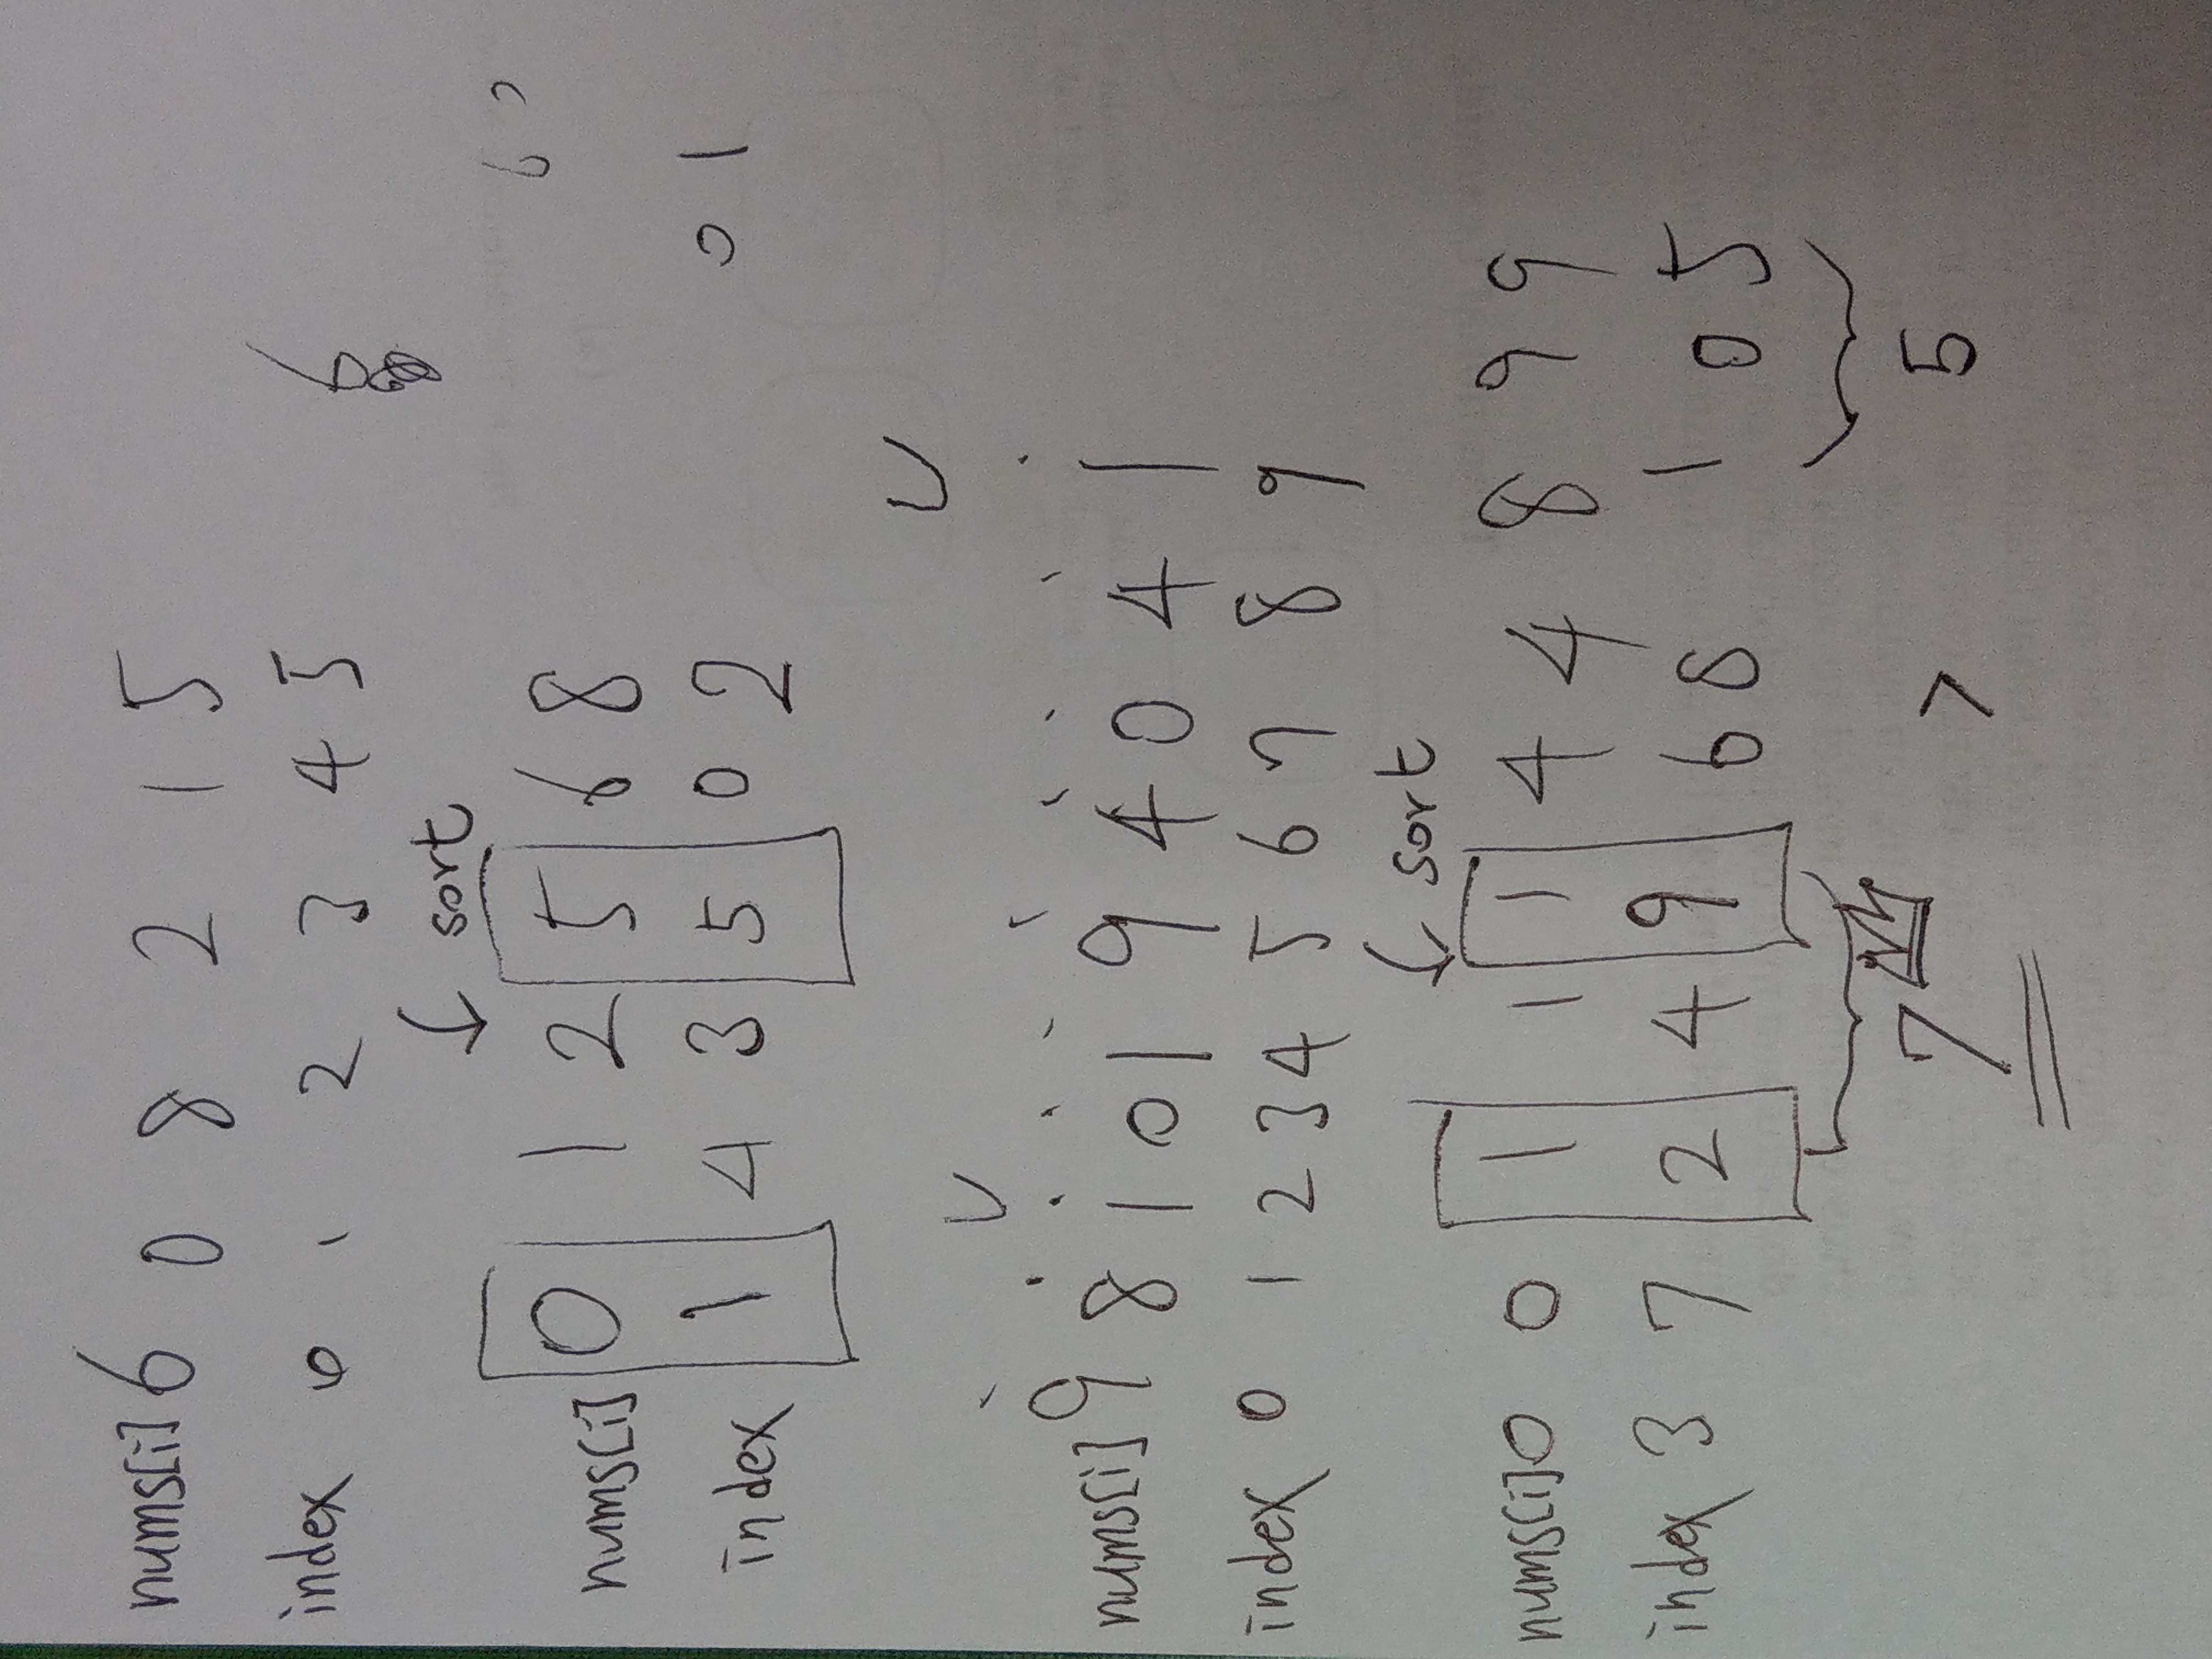 nums[i] 6 0 8 2 1 5
index 0 1 2 3 4 5
6
sort
6 0
nums[i] 0 1 2 5 6 8
index 1 4 3 5 0 2
0 1
nums[i] 9 8 1 0 1 9 4 0 4 1
index 0 1 2 3 4 5 6 7 8 9
sort
nums[i] 0 0 1 1 1 4 4 8 9 9
index 3 7 2 4 9 6 8 1 0 5
7 > 5